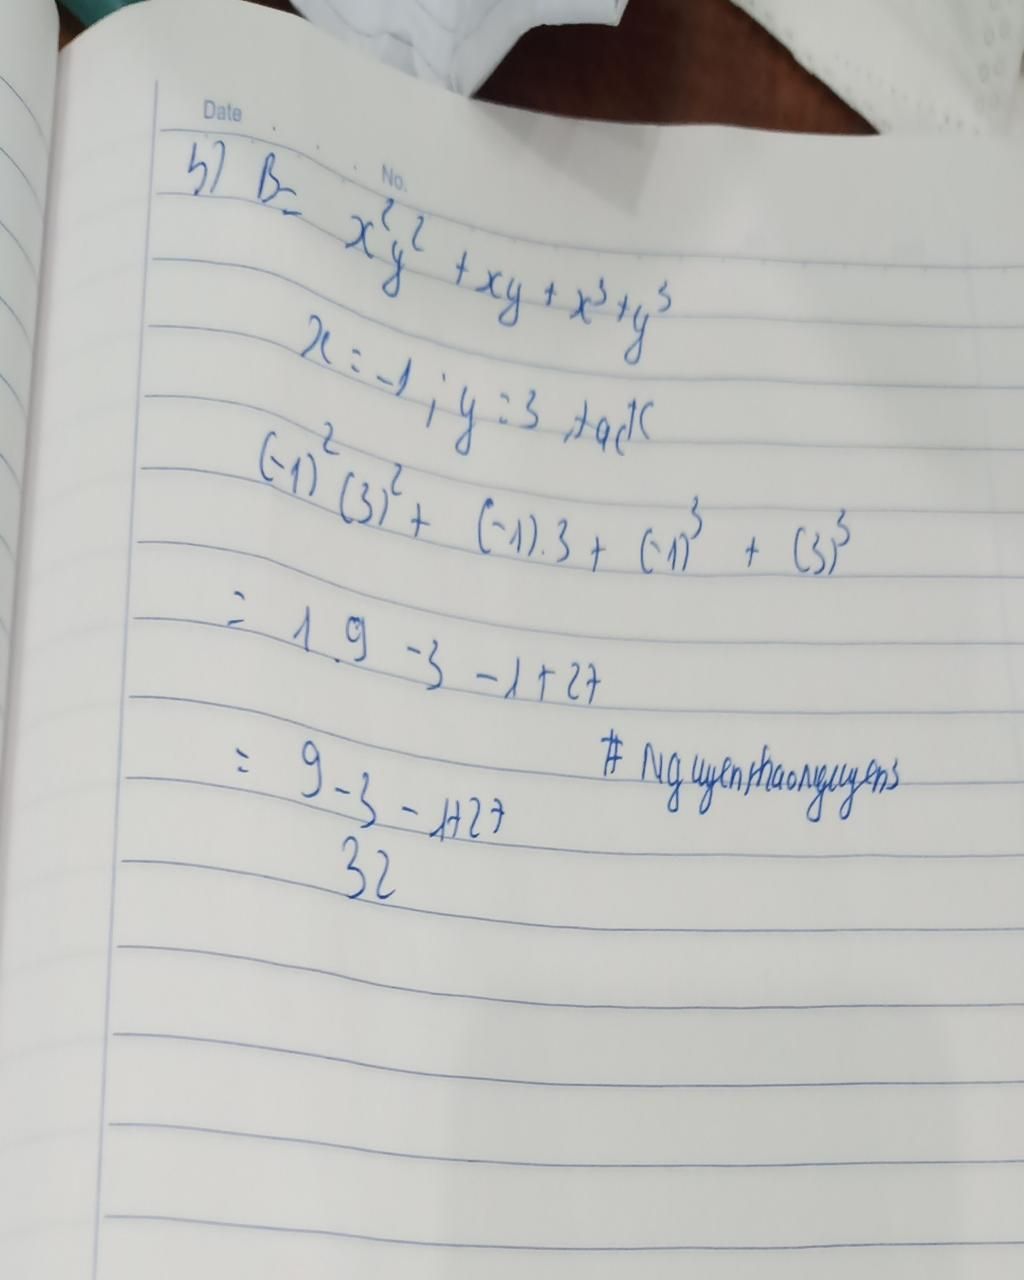 Date
No.
b) B = x²y² + xy + x³ + y³
x = -1 ; y = 3 , ta có
(-1)² (3)² + (-1).3 + (-1)³ + (3)³
= 1.9 - 3 - 1 + 27
= 9 - 3 - 1 + 27
# Nguyenthaonguyen3
32